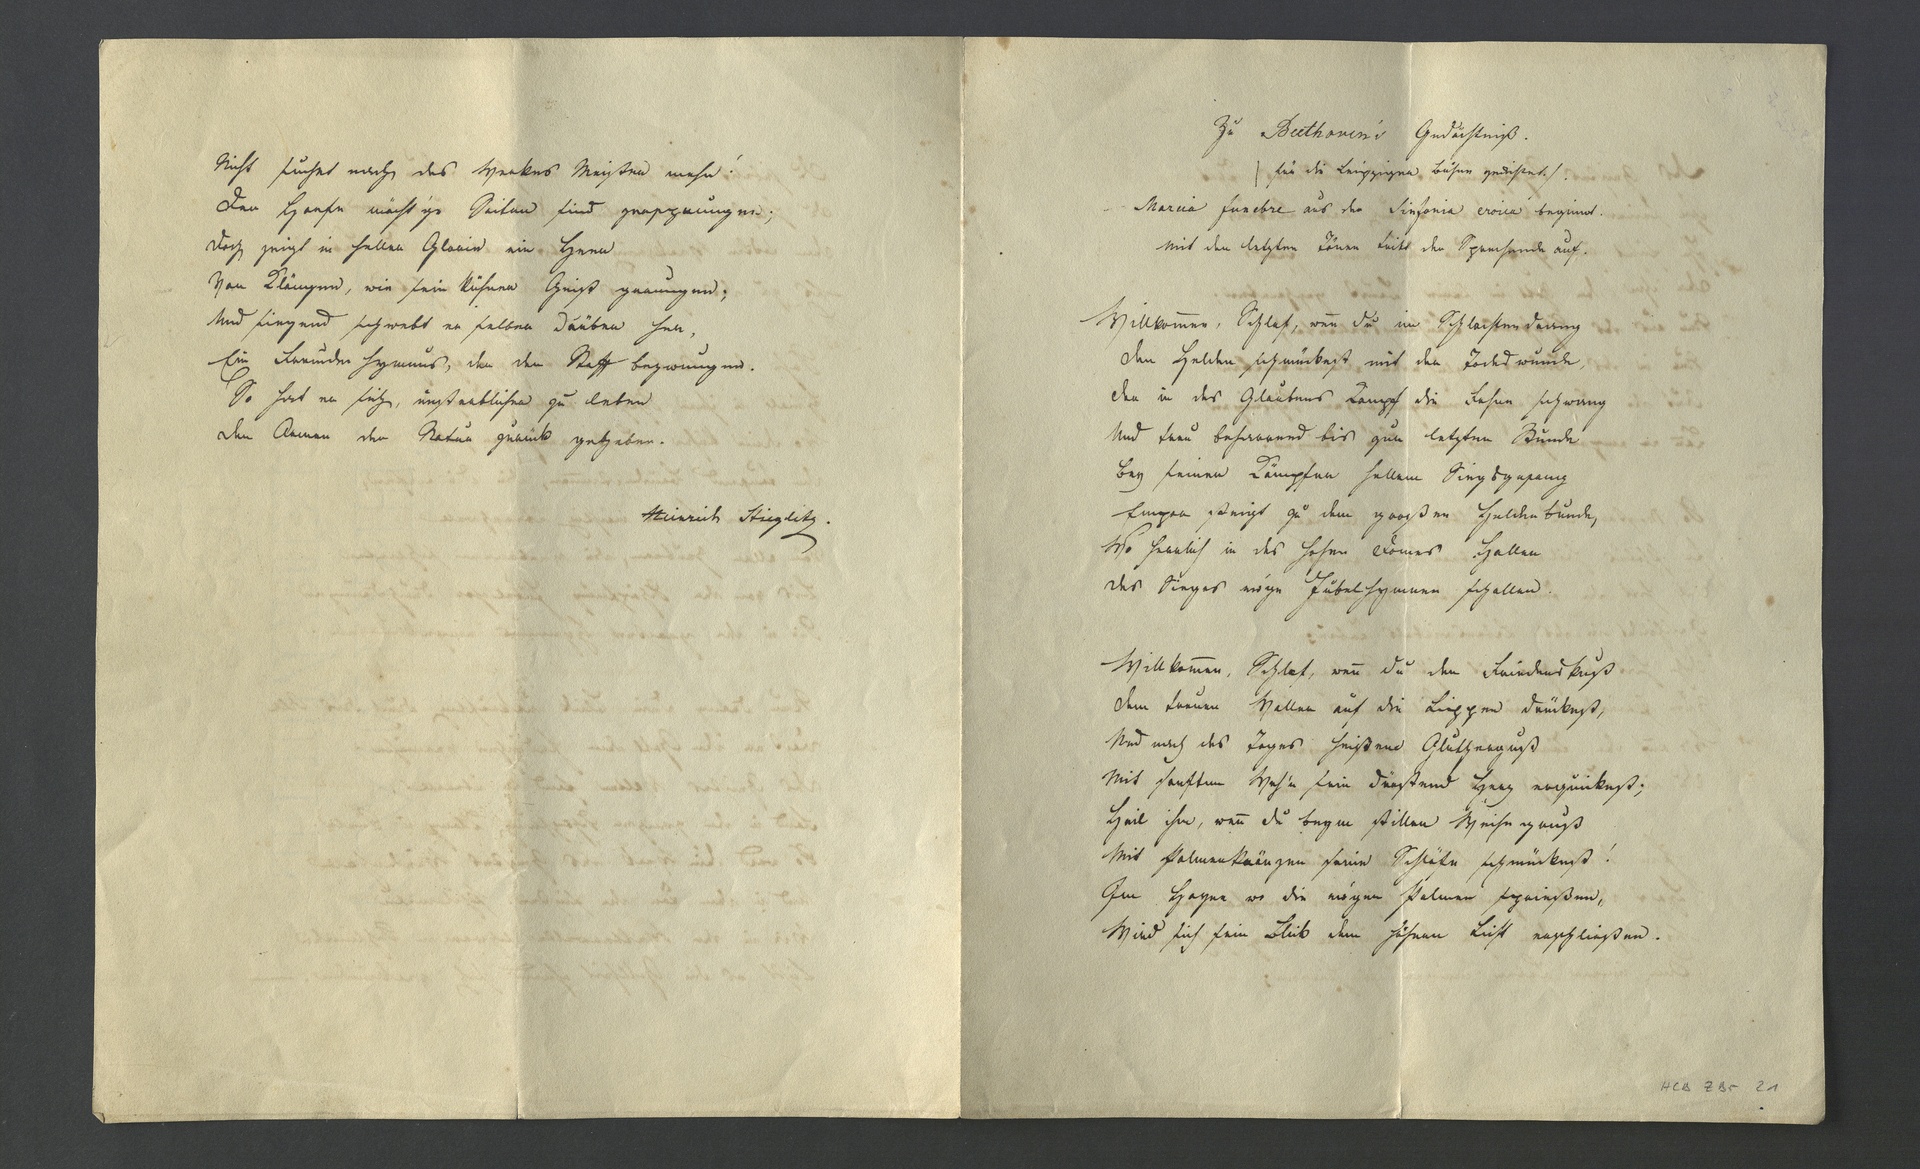 Nicht suchet nach des Werkes Meister mehr!
Der Harfe mächt'ge Saiten sind zersprungen;
Doch zeigt in hellen Glorie ein Heer
Von Klängen, wie sein kühner Geist gerungen;
Und siegend schwebt er selber drüber her,
Ein Freudenhymnus, der den Stoff bezwungen.
So hat er sich, unsterblicher zu leben
Den Armen der Natur zurück gegeben.
Heinrich Stieglitz.
Zu Beethoven's Gedächtniß.
(für die Leipziger Bühne gedichtet).
Marcia funebre aus der Sinfonia eroica beginnt.
Mit den letzten Tönen tritt der Sprechende auf.
Willkom̅en, Schlaf, wen̅ du im Schlachtendrang
Den Helden schmückest mit der Todeswunde,
Der in des Glaubens Kampf die Fahne schwang
Und treu beharrend bis zur letzten Stunde
Bey seiner Kämpfer hellem Siegsgesang
Empor steigt zu dem großen Heldenbunde,
Wo herrlich in des hohen Domes Hallen
Des Sieges ew'ge Jubelhymnen schallen.
Willkom̅en, Schlaf, wen̅ du den Friedenskuß
Dem treuen Waller auf die Lippen drückest,
Und nach des Tages heißem Gluthenguß
Mit sanftem Weh'n sein dürstend Herz erquickest;
Heil ihm, wen̅ du beym stillen Weihegruß
Mit Palmenkränzen seine Schläfe schmückest!
Im Hayne wo die ew'gen Palmen sprießen,
Wird sich sein Blick dem höhern Licht erschließen.
HCB ZBr 21